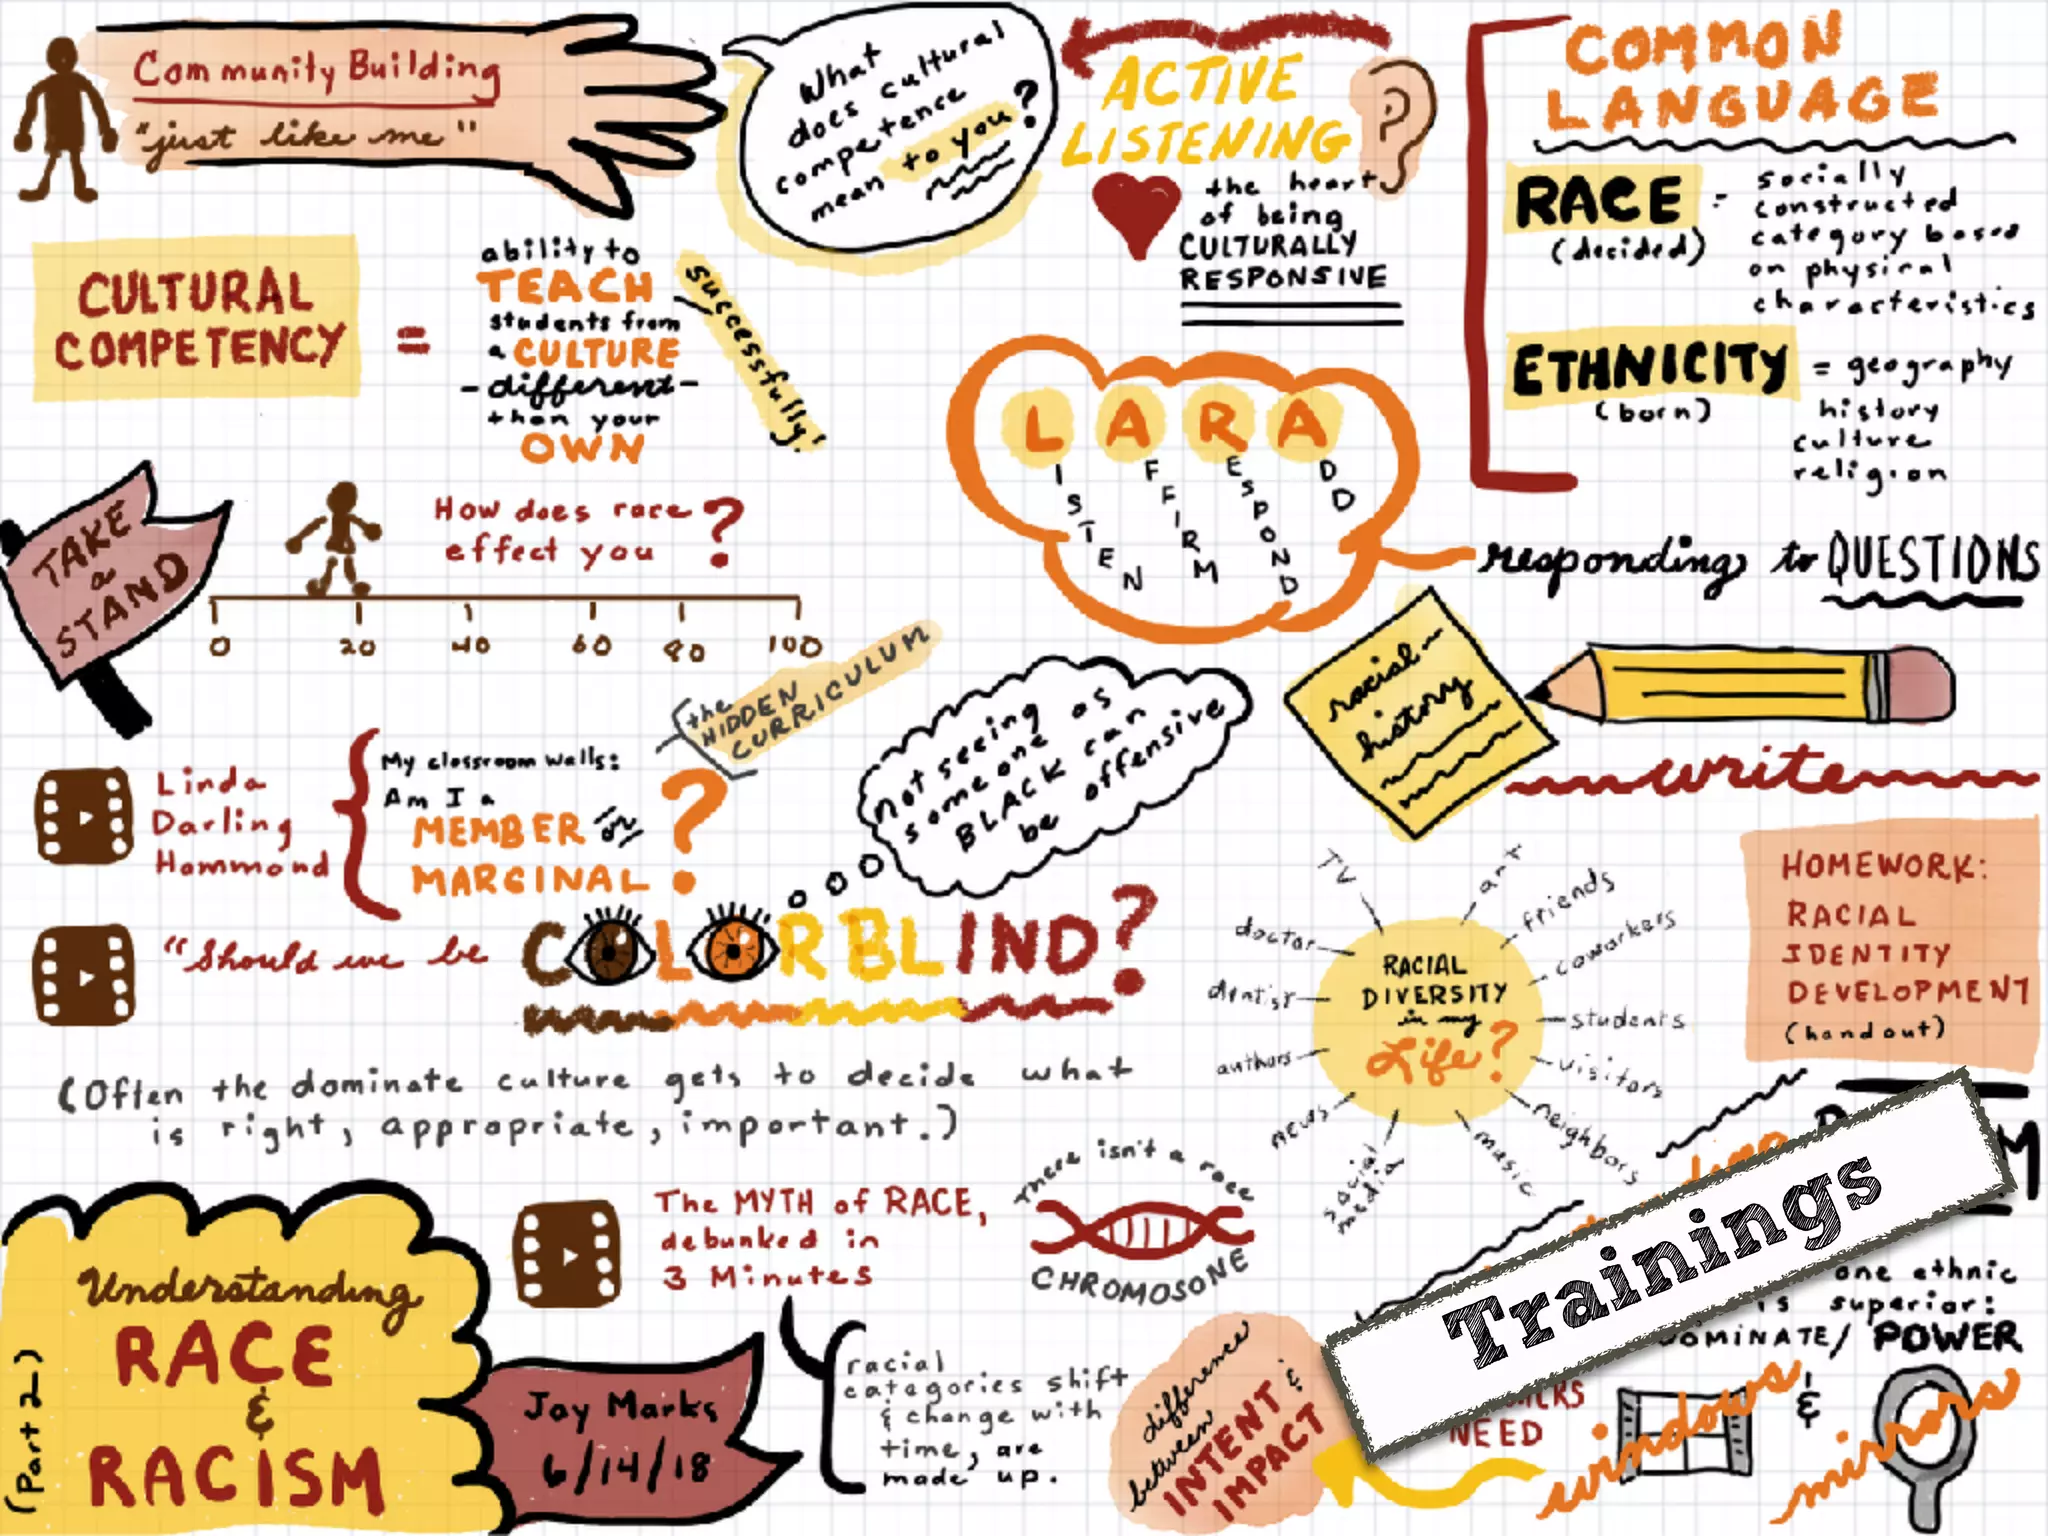 Community Building
"just like me"
What
does cultural
competence
mean to you?
ACTIVE
LISTENING
the heart
of being
CULTURALLY
RESPONSIVE
COMMON
LANGUAGE
RACE =
(decided)
socially
constructed
category based
on physical
characteristics
ETHNICITY
(born)
= geography
history
culture
religion
CULTURAL
COMPETENCY
=
ability to
TEACH
students from
a CULTURE
-different-
than your
OWN
successfully!
LARA
LISTEN
AFFIRM
RESPOND
ADD
responding to QUESTIONS
TAKE
a
STAND
How does race
effect you ?
0 20 40 60 80 100
the
HIDDEN
CURRICULUM
racial
history
write
Linda
Darling
Hammond
My classroom walls:
Am I a
MEMBER or
MARGINAL ?
Not seeing
someone as
BLACK can
be offensive
"Should we be
COLORBLIND?
(Often the dominate culture gets to decide what
is right, appropriate, important.)
RACIAL
DIVERSITY
in my
Life?
TV
art
friends
coworkers
students
visitors
neighbors
music
social
media
news
authors
dentist
doctor
HOMEWORK:
RACIAL
IDENTITY
DEVELOPMENT
(handout)
Understanding
RACE
&
RACISM
(Part 2)
Jay Marks
6/14/18
The MYTH of RACE,
debunked in
3 Minutes
There isn't a race
CHROMOSONE
racial
categories shift
& change with
time, are
made up.
difference
between
INTENT &
IMPACT
Trainings
one ethnic
is superior:
DOMINATE/ POWER
NEED
windows
&
mirrors